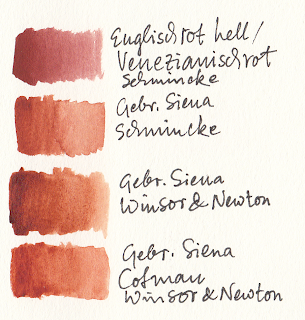 Englischrot hell/
Venezianischrot
Schmincke
Gebr. Siena
Schmincke
Gebr. Siena
Winsor & Newton
Gebr. Siena
Cotman
Winsor & Newton